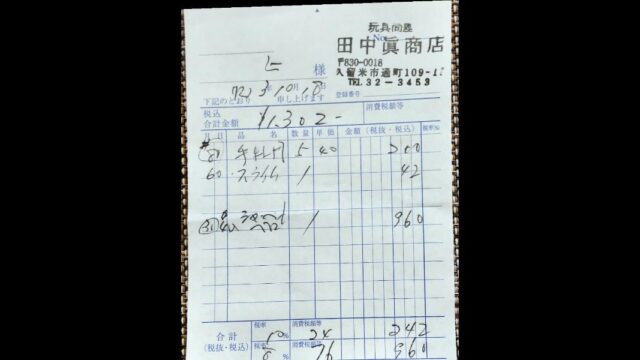 玩具問屋
No.
田中眞商店
〒830-0018
久留米市通町109-1
TEL 32-3453
様
年10月18日
下記のとおり 申し上げます
登録番号
税込
合計金額 ¥1,302-
消費税額等
月 日 品 名 数量 単価 金額 (税抜・税込) 税率%
5 40 200
60 スライム 1 42
1 960
合計 税率 10% 消費税額等 24 242
(税抜・税込) 税率 8% 消費税額等 76 960